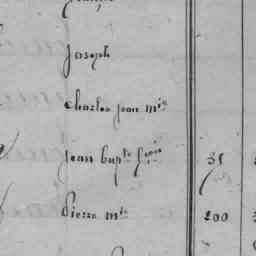 Joseph
Charles jean m.ie
jean bap.te f.çois 35
Pierre m.ie 200